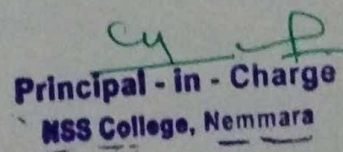 Principal - in - Charge
NSS College, Nemmara